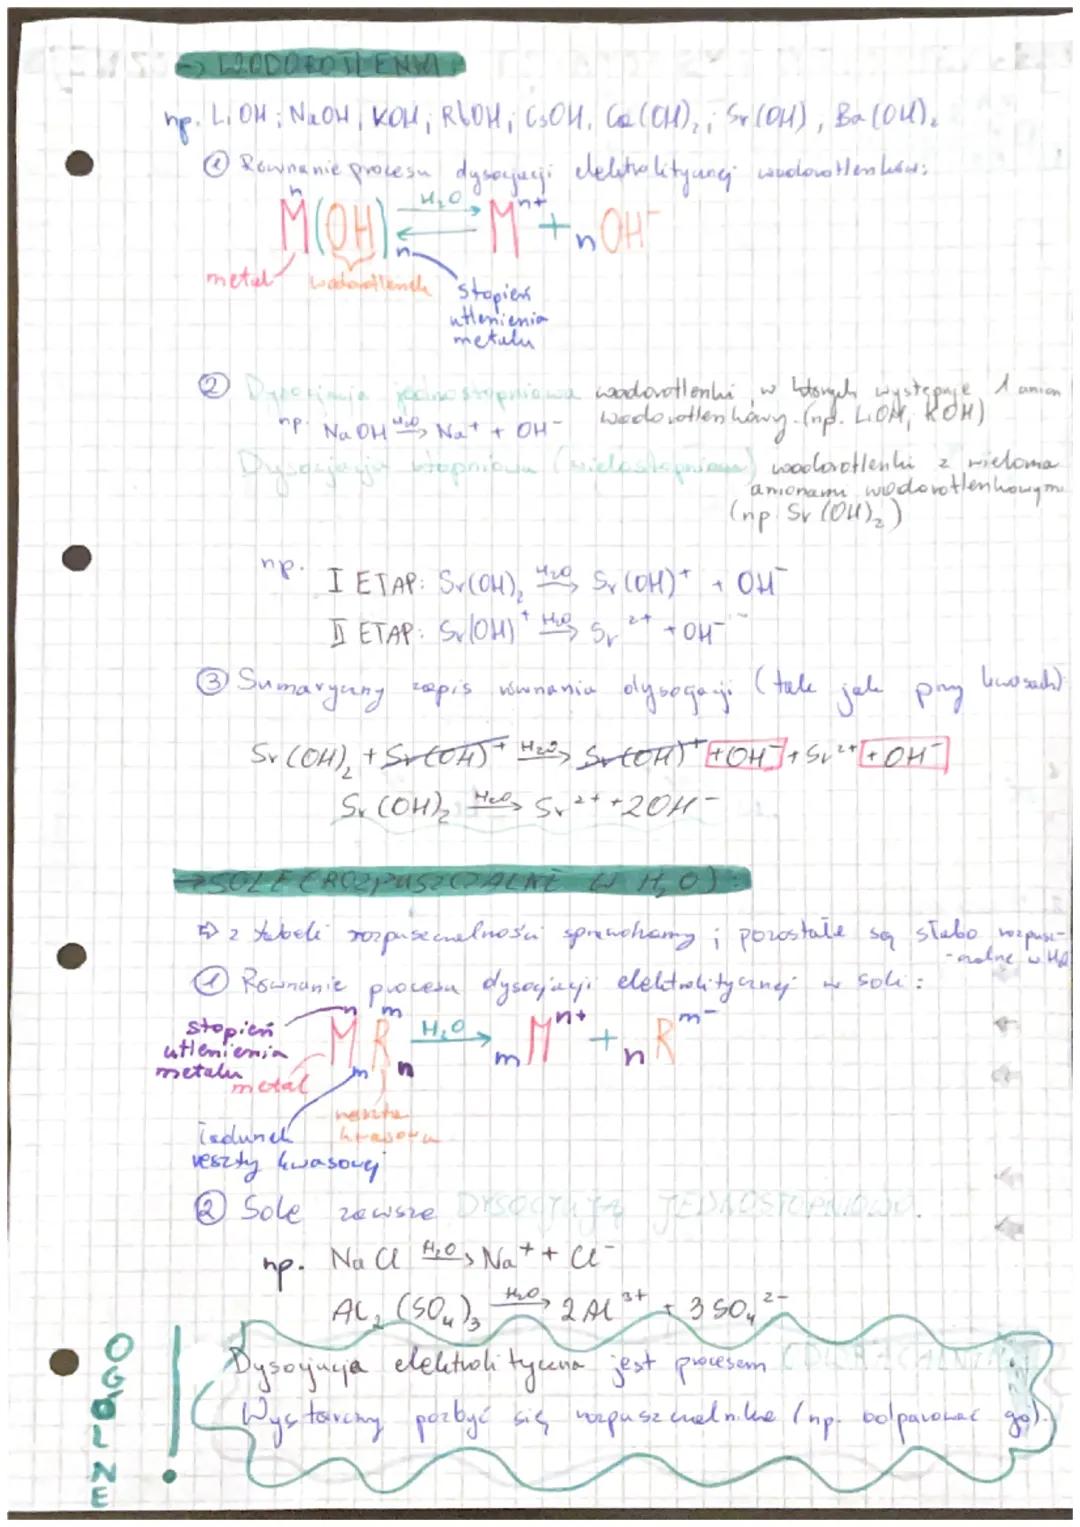 → WODOROTLENKI
np. LiOH; NaOH, KOH; RbOH; CsOH, Ca(OH)₂; Sr(OH), Ba(OH)₂
① Równanie procesu dysocjacji elektrolitycznej wodorotlenków:
M(OH)n ⇄ Mⁿ⁺ + nOH⁻
n
H₂O
metal wodorotlenek stopień
utlenienia
metalu
② Dysocjacja jednostopniowa wodorotlenki, w których występuje 1 anion
wodorotlenkowy. (np. LiOH, KOH)
np. NaOH H₂O→ Na⁺ + OH⁻
Dysocjacja stopniowa (wielostopniowa) wodorotlenki z wieloma
anionami wodorotlenkowym
(np. Sr(OH)₂)
np. I ETAP: Sr(OH)₂ H₂O→ Sr(OH)⁺ + OH⁻
II ETAP: Sr(OH)⁺ H₂O→ Sr²⁺ + OH⁻
③ Sumaryczny zapis równania dysocjacji (tak jak przy kwasach)
Sr(OH)₂ + Sr(OH)⁺ H₂O→ Sr(OH)⁺ + OH⁻ + Sr²⁺ + OH⁻
Sr(OH)₂ H₂O→ Sr²⁺ + 2OH⁻
→ SOLE (ROZPUSZCZALNE W H₂O):
⇨ z tabeli rozpuszczalności sprawdzamy; pozostałe są słabo rozpusz-
-czalne w H₂O
① Równanie procesu dysocjacji elektrolitycznej w soli:
stopień
utlenienia
metalu
n m
MmRn H₂O→ mMⁿ⁺ + nRᵐ⁻
metal
reszta
kwasowa
ładunek
reszty kwasowej
② Sole zawsze DYSOCJUJĄ JEDNOSTOPNIOWO.
np. NaCl H₂O→ Na⁺ + Cl⁻
Al₂(SO₄)₃ H₂O→ 2Al³⁺ + 3SO₄²⁻
OGÓLNE
!
Dysocjacja elektrolityczna jest procesem ODWRACALNYM.
Wystarczy pozbyć się rozpuszczalnika (np. odparować go).